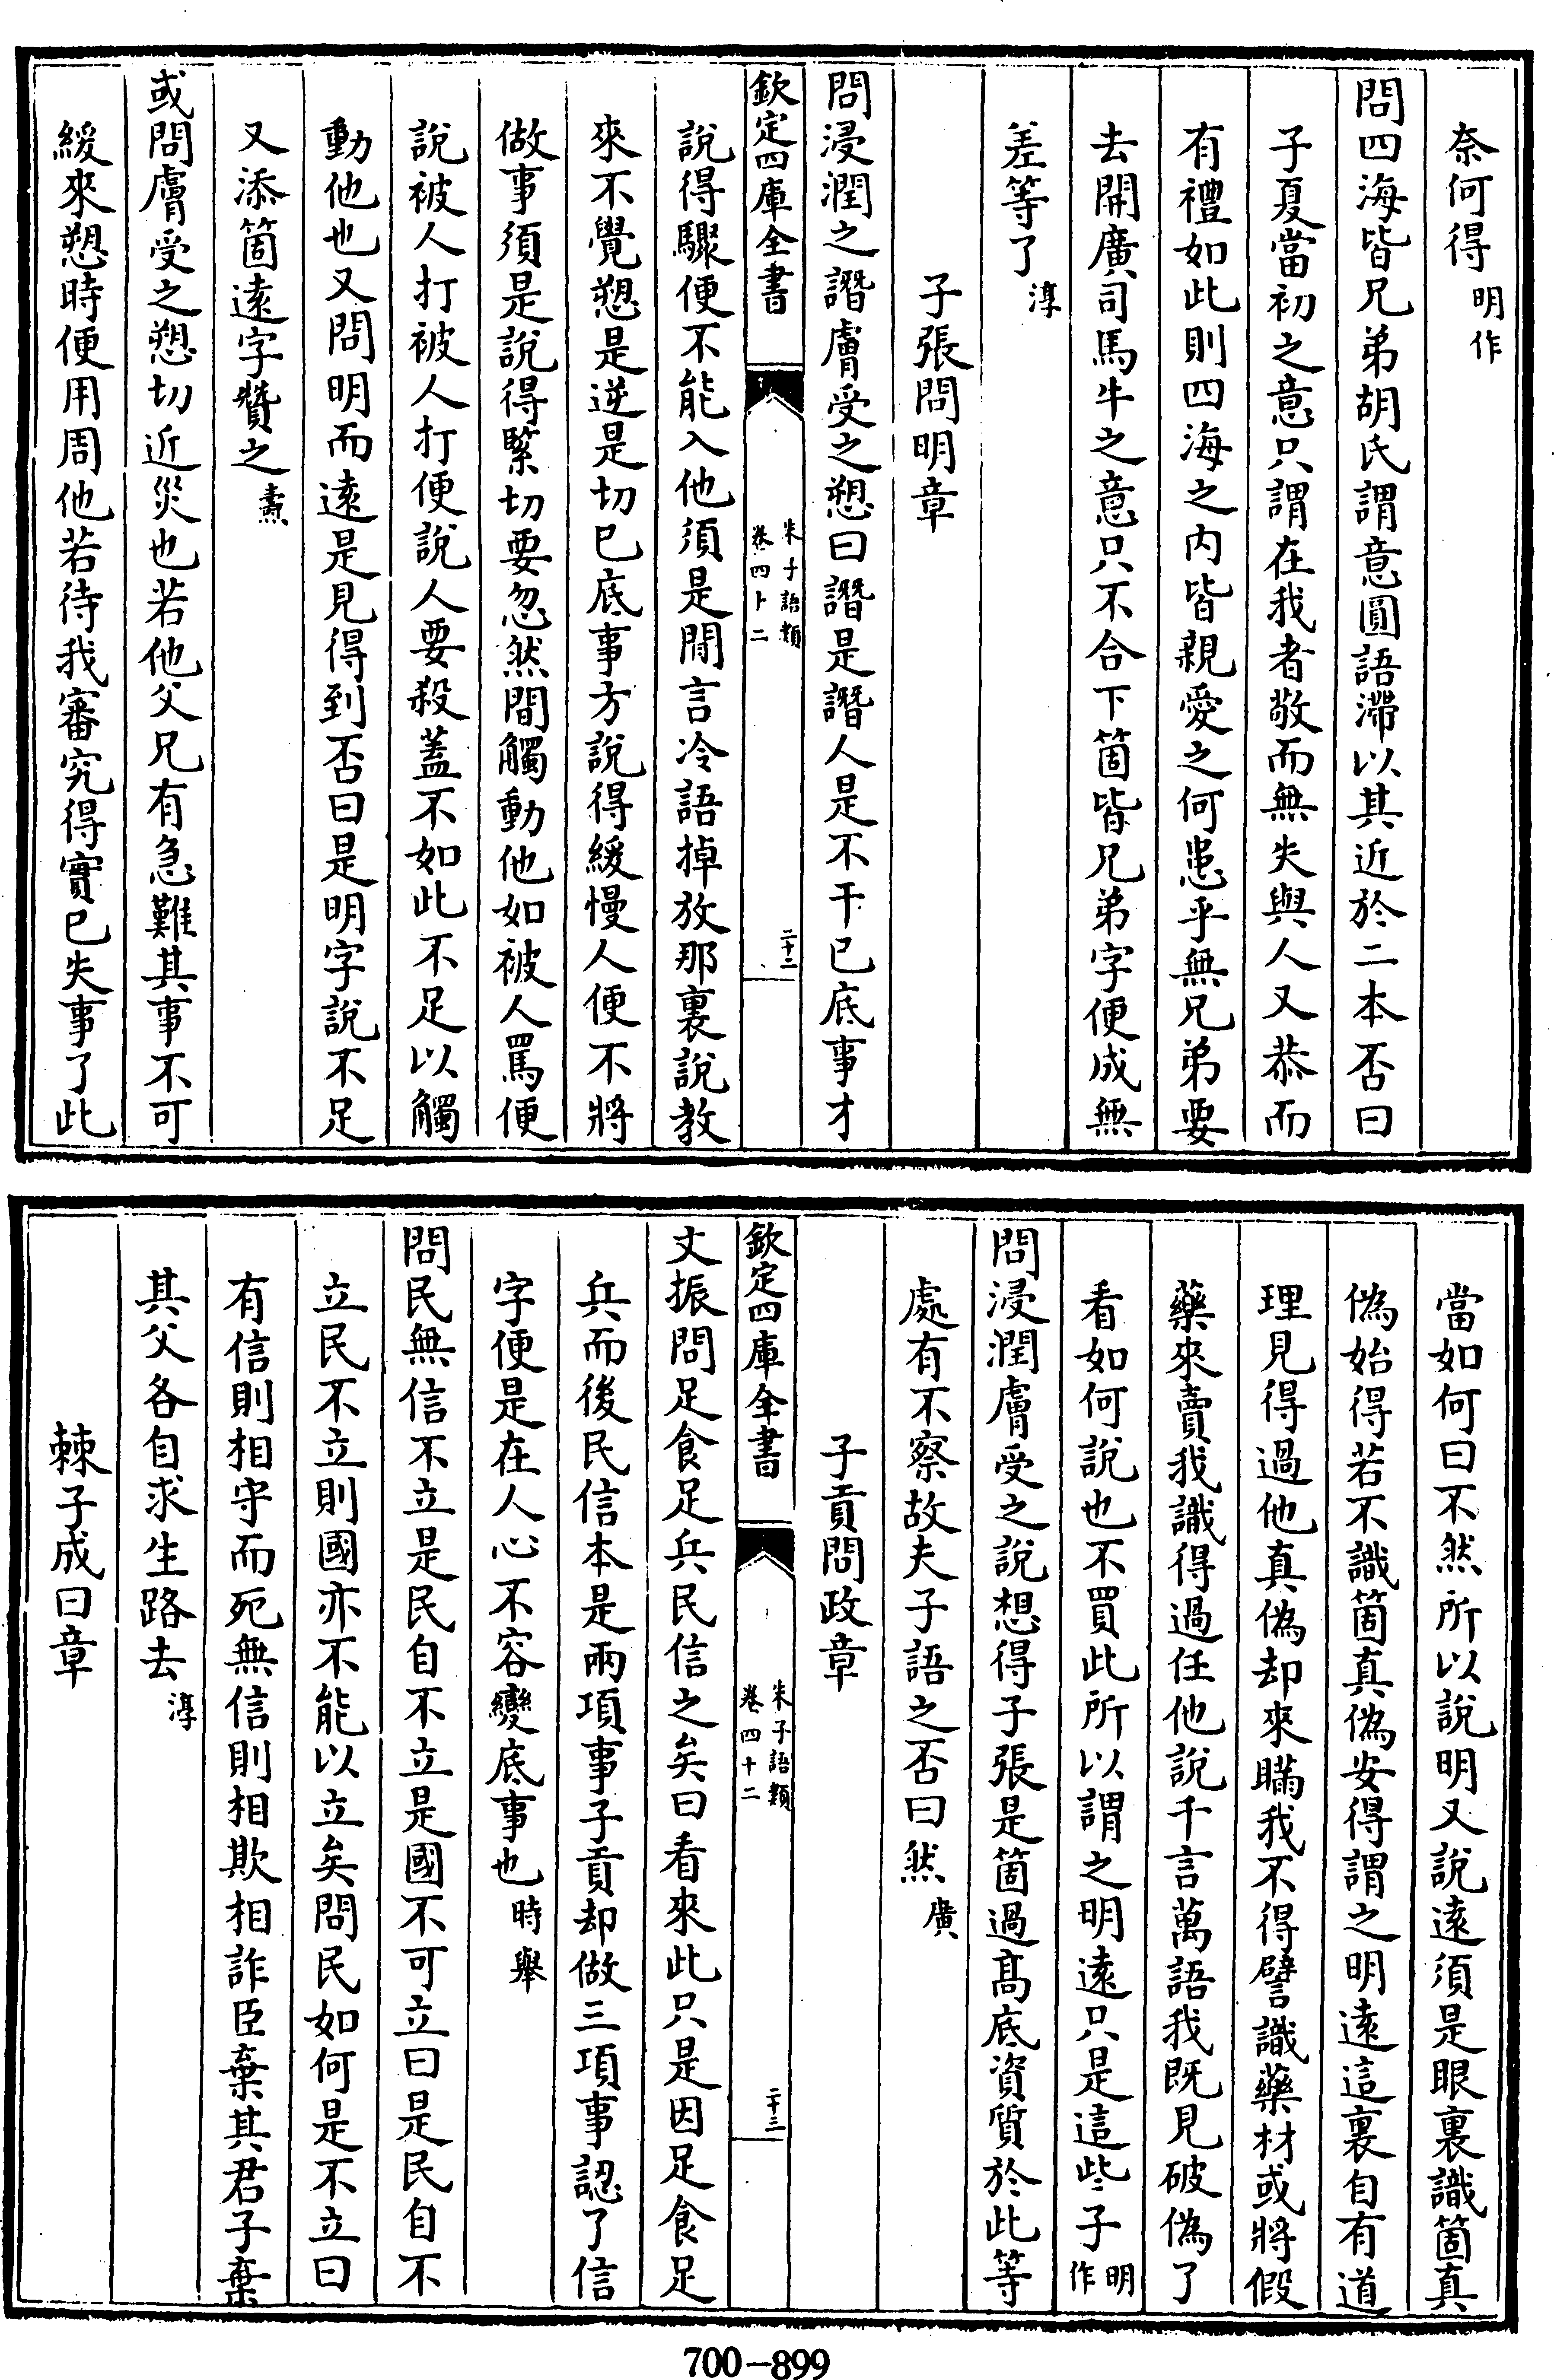 奈何得明作
問四海皆兄弟胡氏謂意圓語滯以其近於二本否曰
子夏當初之意只謂在我者敬而無失與人又恭而
有禮如此則四海之内皆親愛之何患乎無兄弟要
去開廣司馬牛之意只不合下箇皆兄弟字便成無
差等了淳
子張問明章
問浸潤之譖膚受之愬曰譖是譖人是不干已底事才
欽定四庫全書
朱子語類
卷四十二
二十二
說得驟便不能入他須是閒言冷語掉放那裏說教
來不覺愬是逆是切已底事方說得緩慢人便不將
做事須是說得緊切要忽然間觸動他如被人罵便
說被人打被人打便說人要殺蓋不如此不足以觸
動他也又問明而逺是見得到否曰是明字說不足
又添箇逺字贊之燾
或問膚受之愬切近災也若他父兄有急難其事不可
緩來愬時便用周他若待我審究得實已失事了此
當如何曰不然所以說明又說逺須是眼裏識箇真
偽始得若不識箇真偽安得謂之明逺這裏自有道
理見得過他真偽却來瞞我不得譬識藥材或將假
藥來賣我識得過任他說千言萬語我既見破偽了
看如何說也不買此所以謂之明逺只是這些子明作
問浸潤膚受之說想得子張是箇過髙底資質於此等
處有不察故夫子語之否曰然廣
子貢問政章
欽定四庫全書
朱子語類
卷四十二
二十三
文振問足食足兵民信之矣曰看來此只是因足食足
兵而後民信本是兩項事子貢却做三項事認了信
字便是在人心不容變底事也時舉
問民無信不立是民自不立是國不可立曰是民自不
立民不立則國亦不能以立矣問民如何是不立曰
有信則相守而死無信則相欺相詐臣棄其君子棄
其父各自求生路去淳
棘子成曰章
700-899